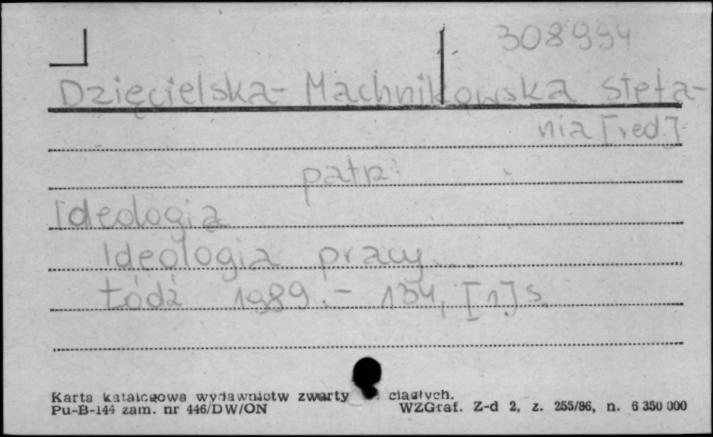 308994
Dzięcielska-Machnikowska Stefa-
nia [red.]
patrz:
Ideologia
Ideologia pracy...
Łódź 1989.- 134, [1] s.
Karta katalogowa wydawnictw zwarty ciągłych.
Pu-B-144 zam. nr 446/DW/ON WZGraf. Z-d 2, z. 255/86, n. 6 350 000